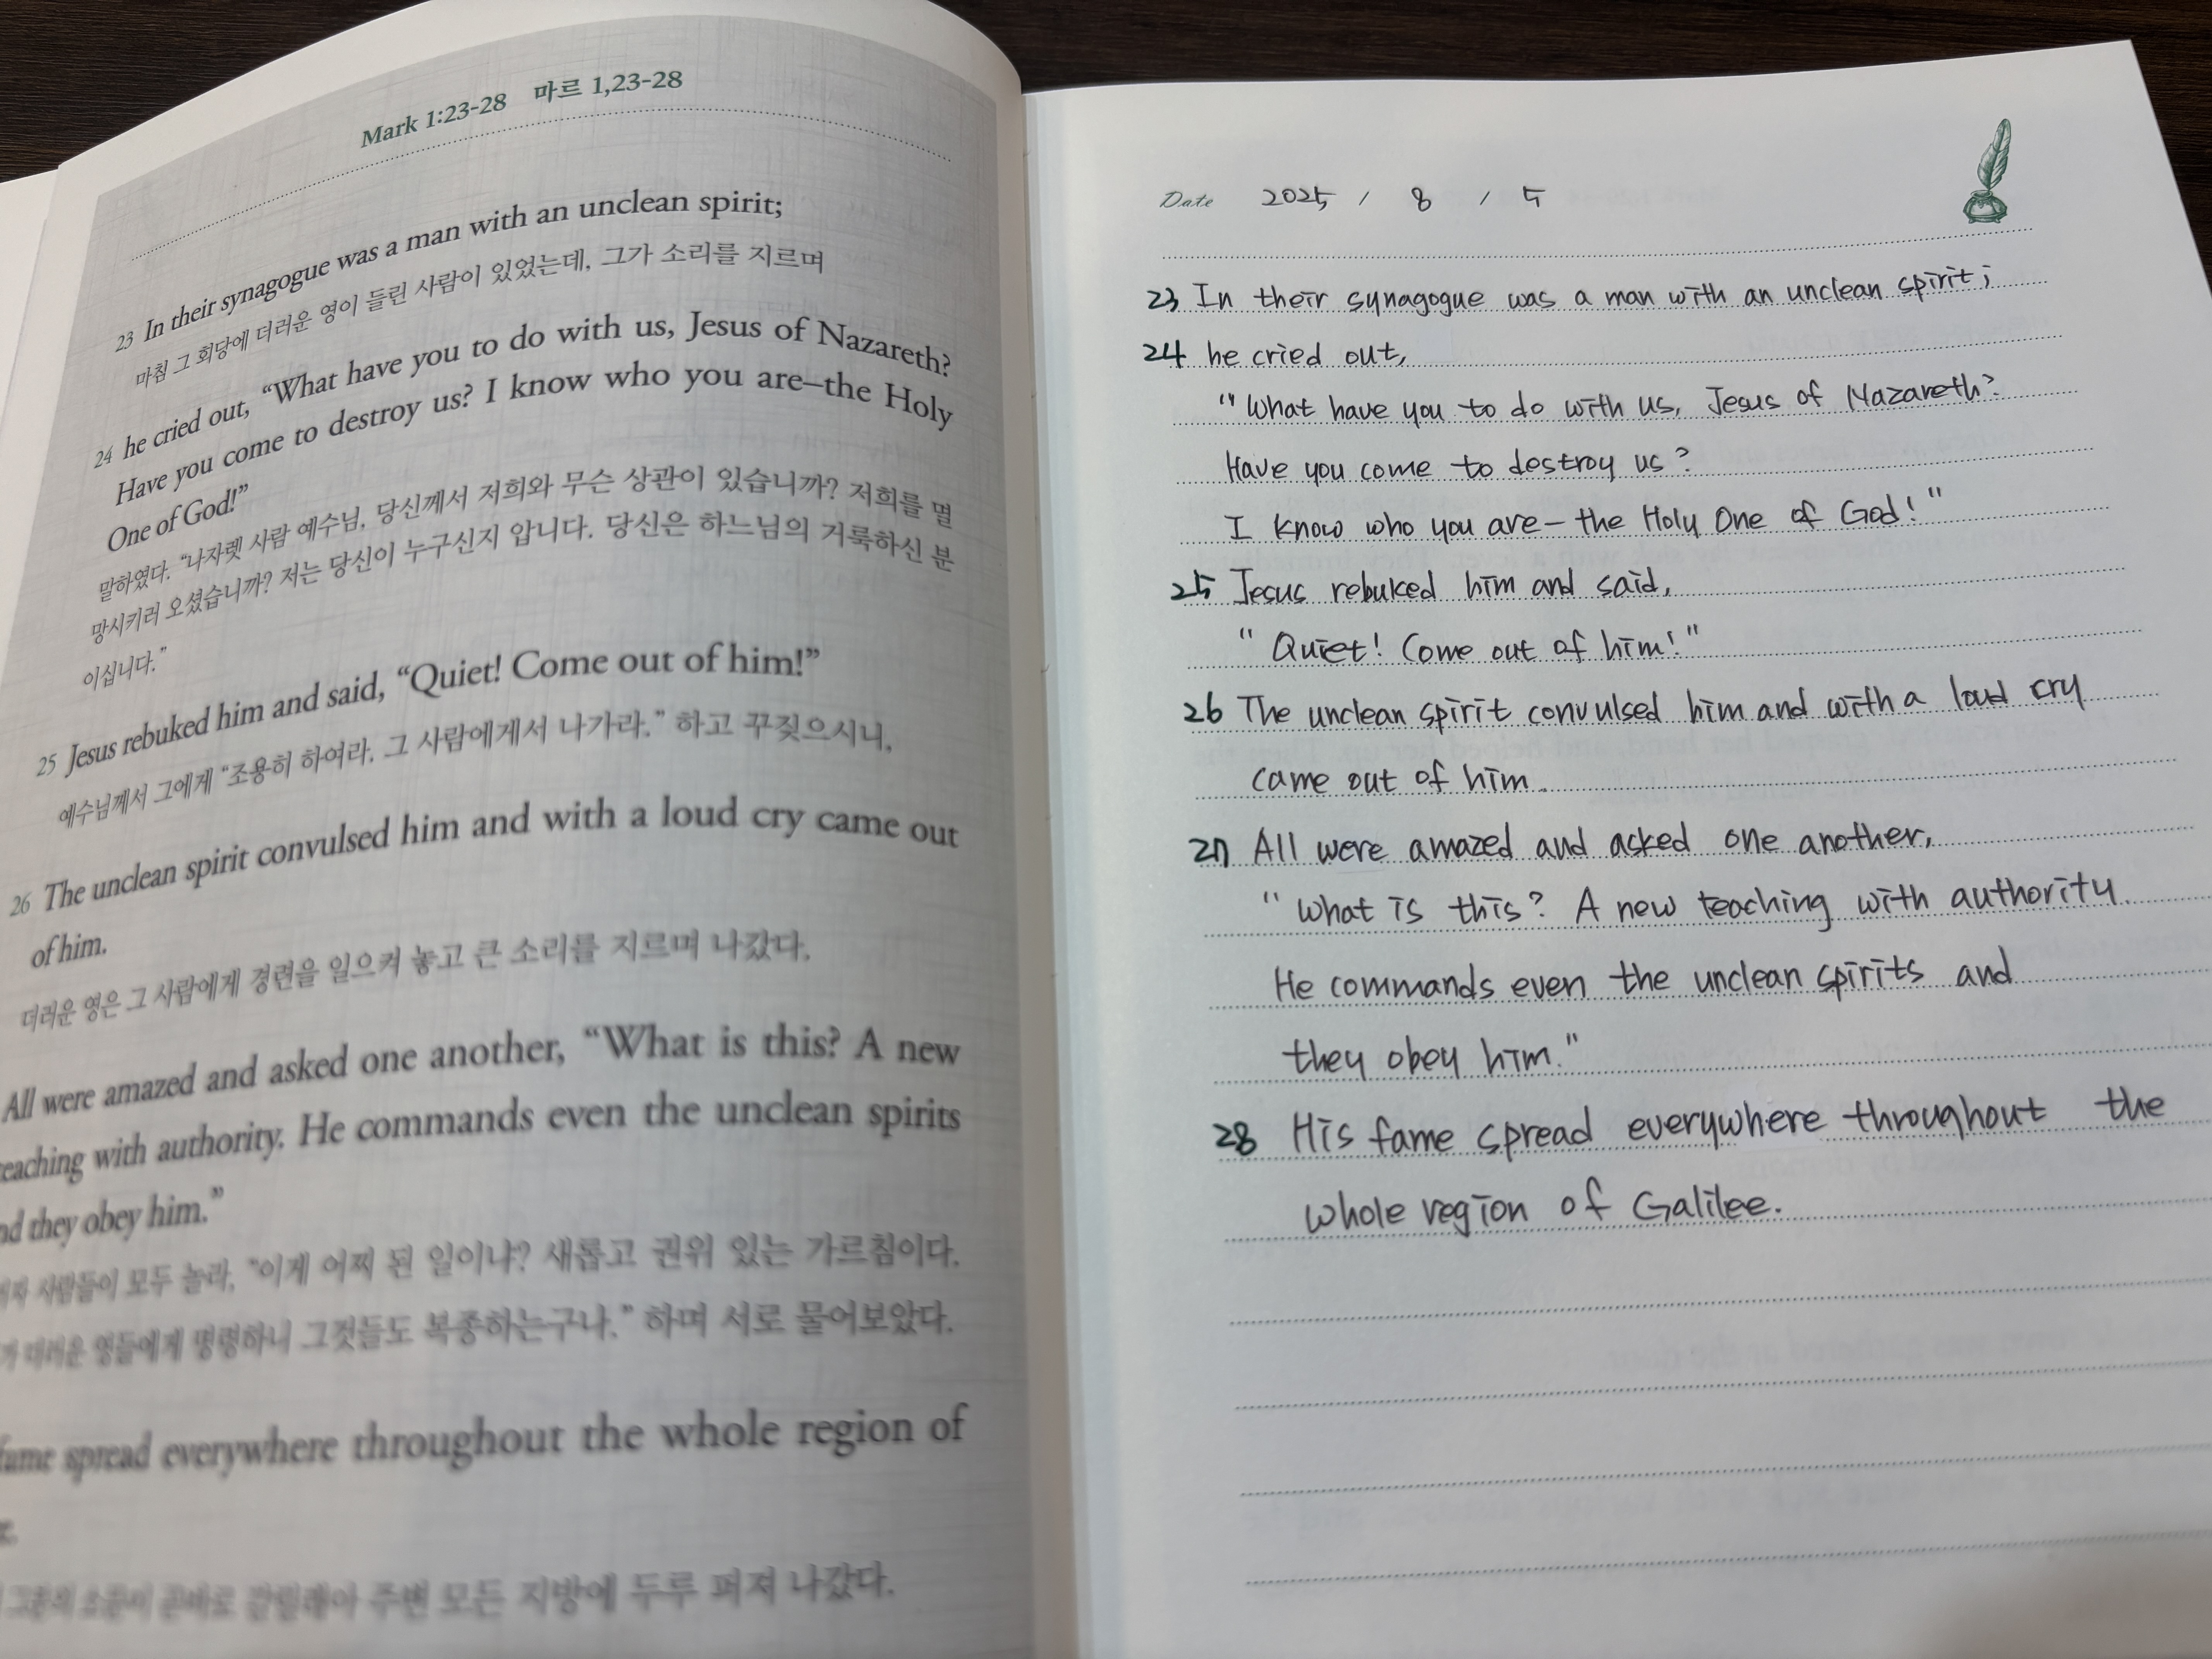 Mark 1:23-28 마르 1,23-28
23 In their synagogue was a man with an unclean spirit;
마침 그 회당에 더러운 영이 들린 사람이 있었는데, 그가 소리를 지르며
24 he cried out, “What have you to do with us, Jesus of Nazareth?
Have you come to destroy us? I know who you are–the Holy
One of God!”
말하였다. “나자렛 사람 예수님, 당신께서 저희와 무슨 상관이 있습니까? 저희를 멸
망시키러 오셨습니까? 저는 당신이 누구신지 압니다. 당신은 하느님의 거룩하신 분
이십니다.”
25 Jesus rebuked him and said, “Quiet! Come out of him!”
예수님께서 그에게 “조용히 하여라. 그 사람에게서 나가라.” 하고 꾸짖으시니,
26 The unclean spirit convulsed him and with a loud cry came out
of him.
더러운 영은 그 사람에게 경련을 일으켜 놓고 큰 소리를 지르며 나갔다.
All were amazed and asked one another, “What is this? A new
teaching with authority. He commands even the unclean spirits
and they obey him.”
사람들이 모두 놀라, “이게 어찌 된 일이냐? 새롭고 권위 있는 가르침이다.
더러운 영들에게 명령하니 그것들도 복종하는구나.” 하며 서로 물어보았다.
fame spread everywhere throughout the whole region of
그분의 소문이 곧바로 갈릴래아 주변 모든 지방에 두루 퍼져 나갔다.
Date 2025 / 8 / 5
23 In their synagogue was a man with an unclean spirit;
24 he cried out,
"What have you to do with us, Jesus of Nazareth?
Have you come to destroy us?
I know who you are – the Holy One of God!"
25 Jesus rebuked him and said,
"Quiet! Come out of him!"
26 The unclean spirit convulsed him and with a loud cry
came out of him.
27 All were amazed and asked one another,
"What is this? A new teaching with authority.
He commands even the unclean spirits and
they obey him."
28 His fame spread everywhere throughout the
whole region of Galilee.